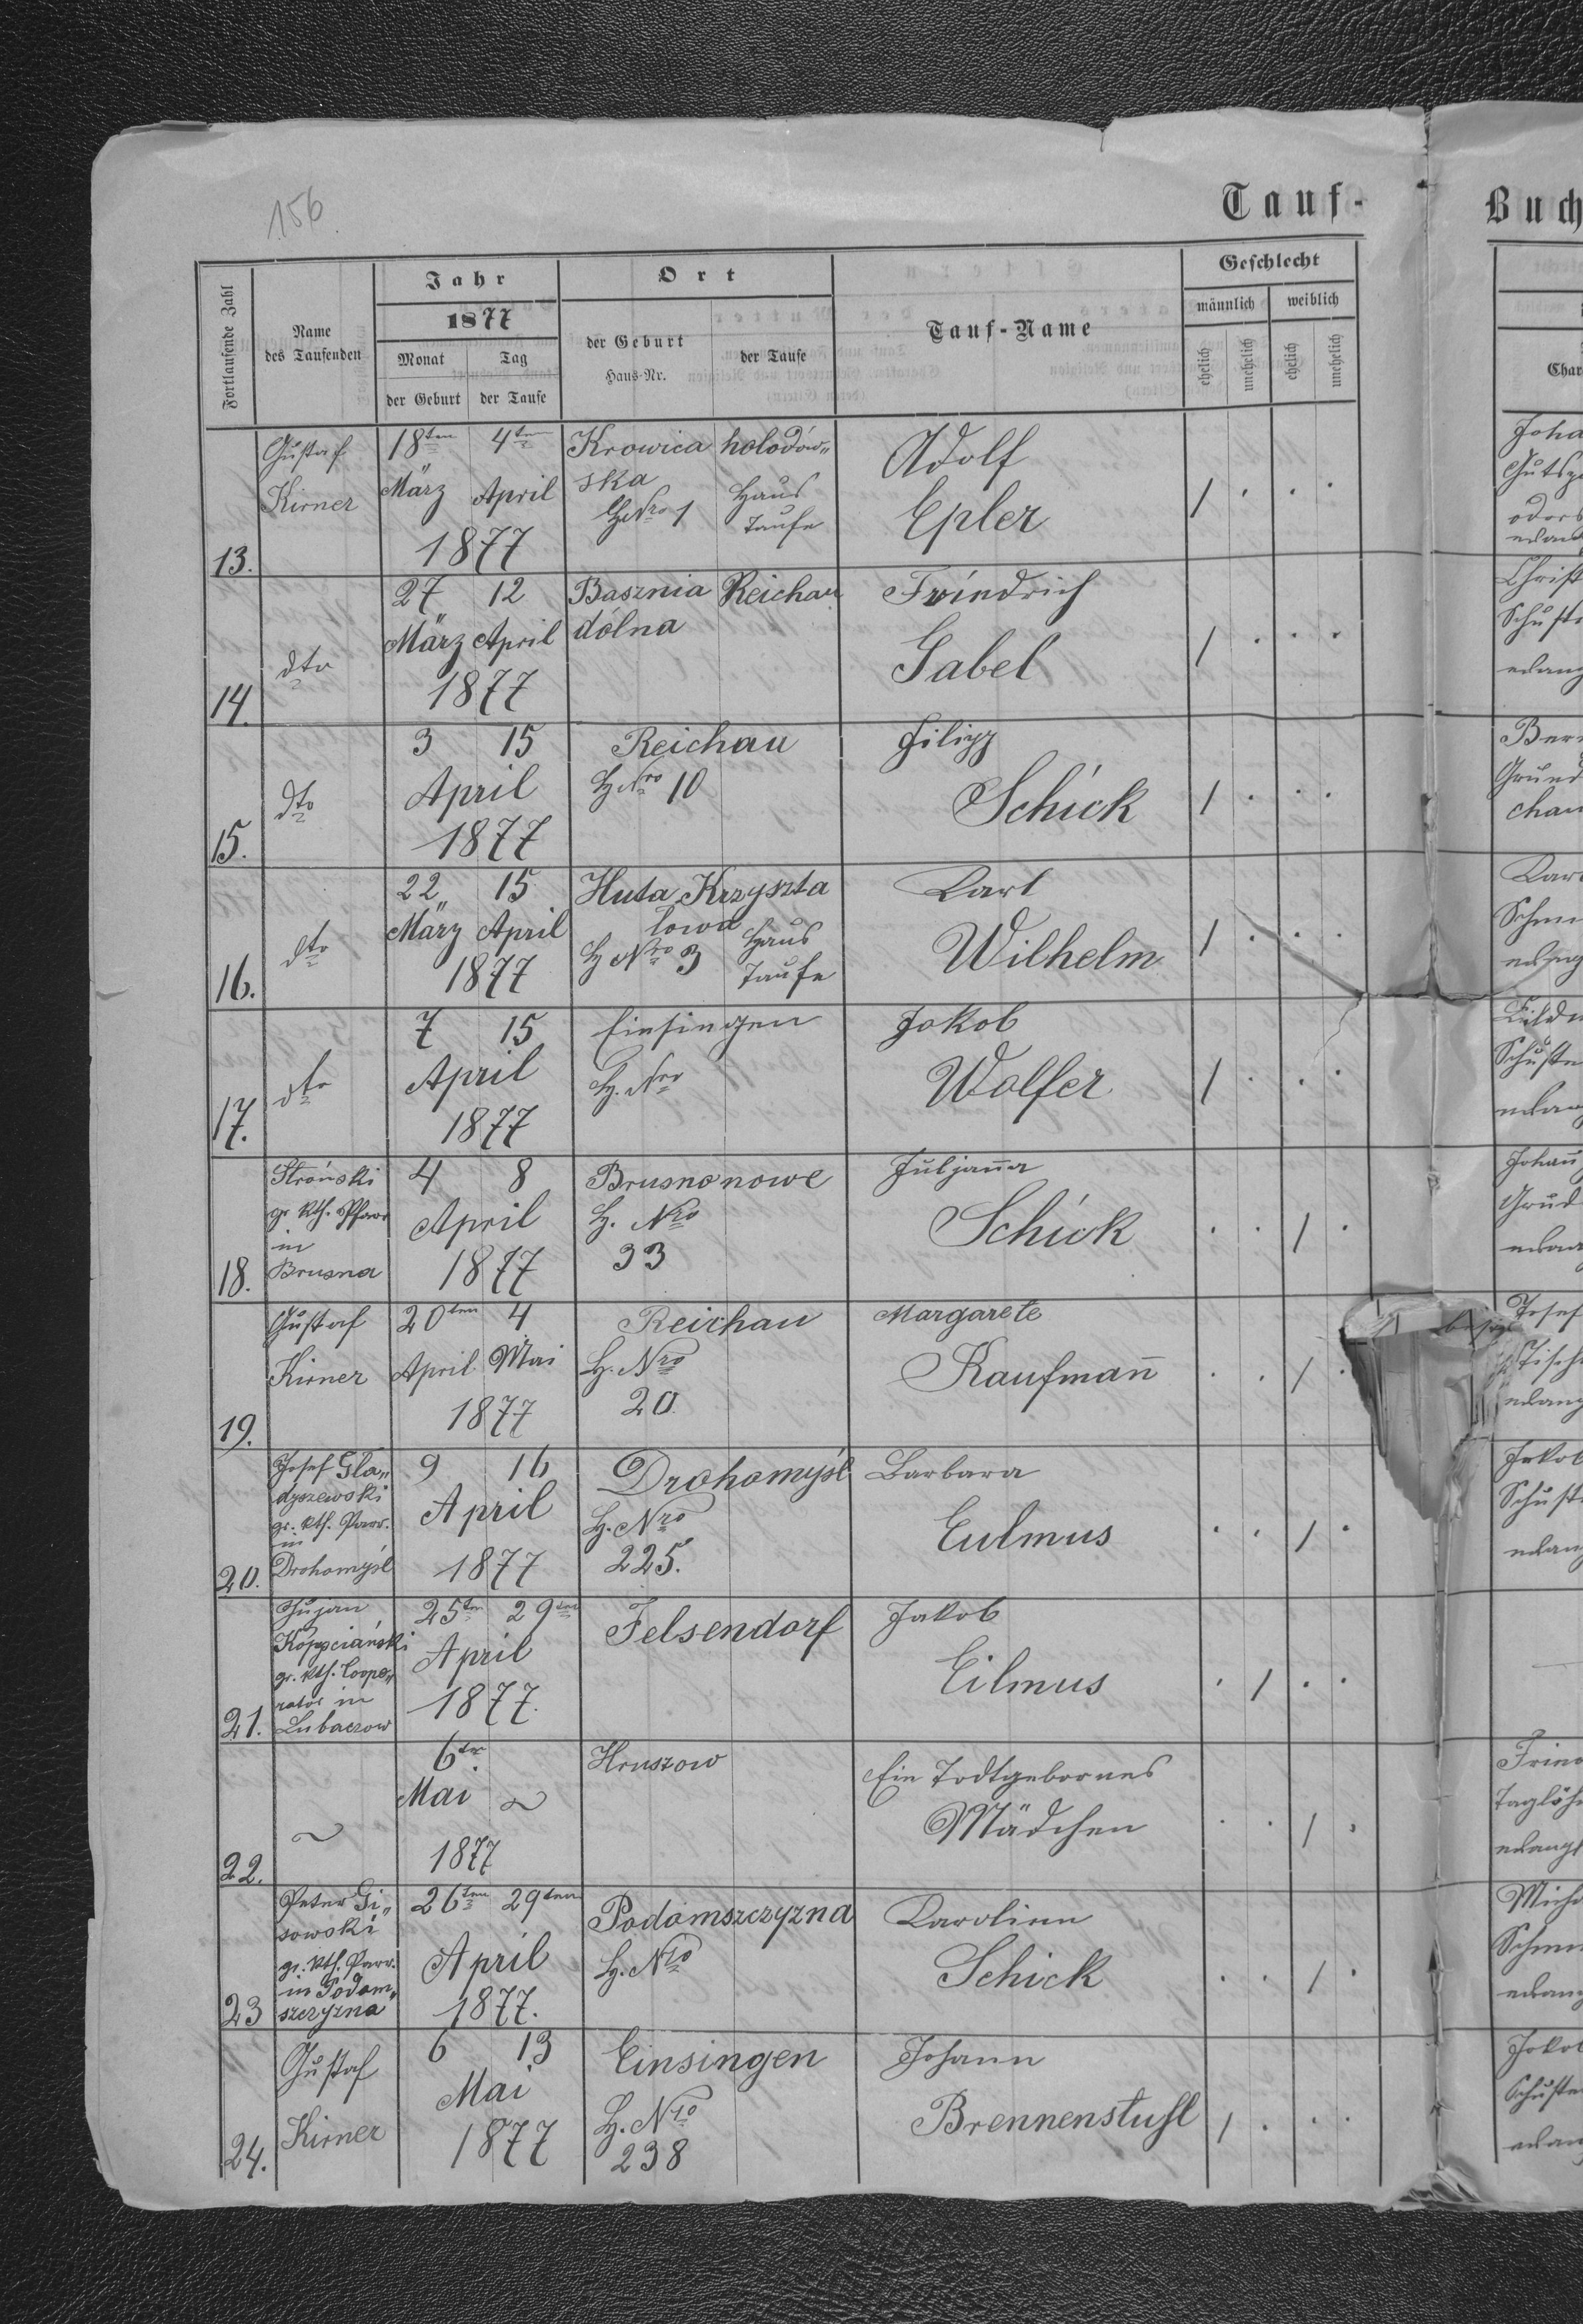 156
Tauf-
Buch
Fortlaufende Zahl
Name
des Taufenden
Jahr
1877
Monat
Tag
der Geburt
der Taufe
Ort
der Geburt
Haus-Nr.
der Taufe
Tauf-Name
Geschlecht
männlich
weiblich
ehelich
unehelich
ehelich
unehelich
13.
Gustaf
Kirner
18ten 4ten
März April
1877
Krowica holodów„
ska
H Nro 1
Haus
Taufe
Adolf
Epler
1 . . .
14.
dto
27 12
März April
1877
Basznia Reichau
dólna
Friedrich
Gabel
1 . . .
15.
dto
3 15
April
1877
Reichau
H Nro 10
Filipp
Schick
1 . . .
16.
dto
22 15
März April
1877
Huta Krzyszta
lowa
H Nro 3
Haus
Taufe
Karl
Wilhelm
1 . . .
17.
dto
7 15
April
1877
Einsingen
H. Nro
Jakob
Wolfer
1 . . .
18.
Stroński
gr. kth. Pfarr
in
Brusna
4 8
April
1877
Brusno nowe
H. Nro
33
Juljan̄a
Schick
. . 1 .
19.
Gustaf
Kirner
20ten 4
April Mai
1877
Reichau
H. Nro
20
Margarete
Kaufman̄
. . 1 .
20.
Josef Gla„
dyszewski
gr. kth. Parr.
in
Drohomyśl
9 16
April
1877
Drohomyśl
H. Nro
225.
Barbara
Eulmus
. . 1 .
21.
Kopyściański
gr. kth. Coope„
rator in
Lubaczow
25ten 29ten
April
1877.
Felsendorf
Jakob
Eilmus
. 1 . .
22.
~
6ten
Mai ~
1877
Hruszow
Ein Todtgebornes
Mädchen
. . 1 .
23
Peter Gi„
sowski
gr. kth. Parr.
in Podam„
szczyzna
26ten 29ten
April
1877.
Podamszczyzna
H. Nro
Karolina
Schick
. . 1 .
24.
Gustaf
Kirner
6 13
Mai
1877
Einsingen
H. Nro
238
Johann
Brennenstuhl
1 . . .